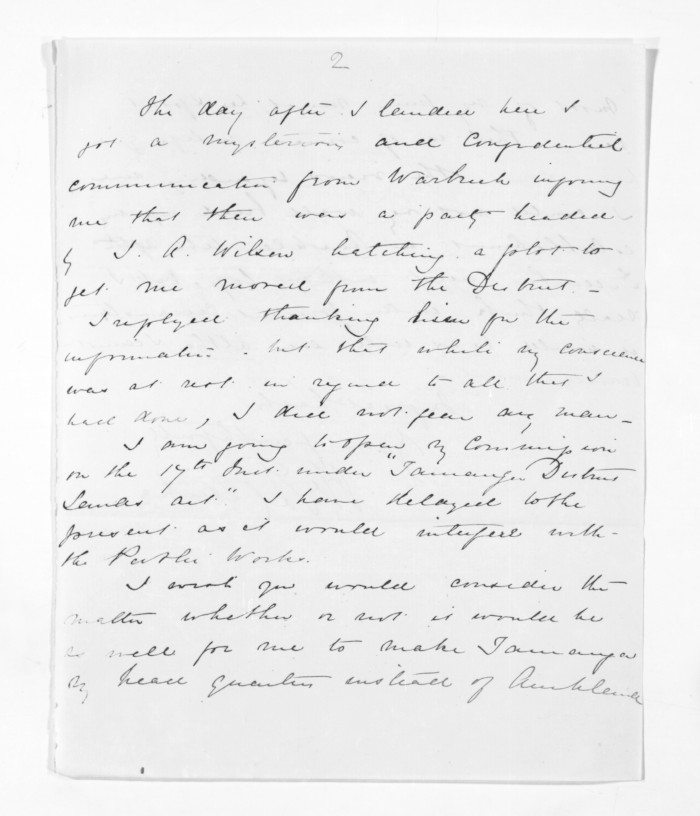 2
The day after I landed here I
got a mysterious and Confidential
communication from Warbrick informing
me that there was a party headed
by J. A. Wilson hatching a plot to
get me moved from the District. –
I replyed thanking him for the
information. but that while my conscience
was at rest in regard to all that I
had done, I did not fear any man –
I am going to open my Commission
on the 17th Inst. under "Tauranga District
Lands Act". I have delayed to the
present as it would interfere with
the Public Works.
I wish you would consider the
matter whether or not it would be
as well for me to make Tauranga
my head quarters instead of Auckland